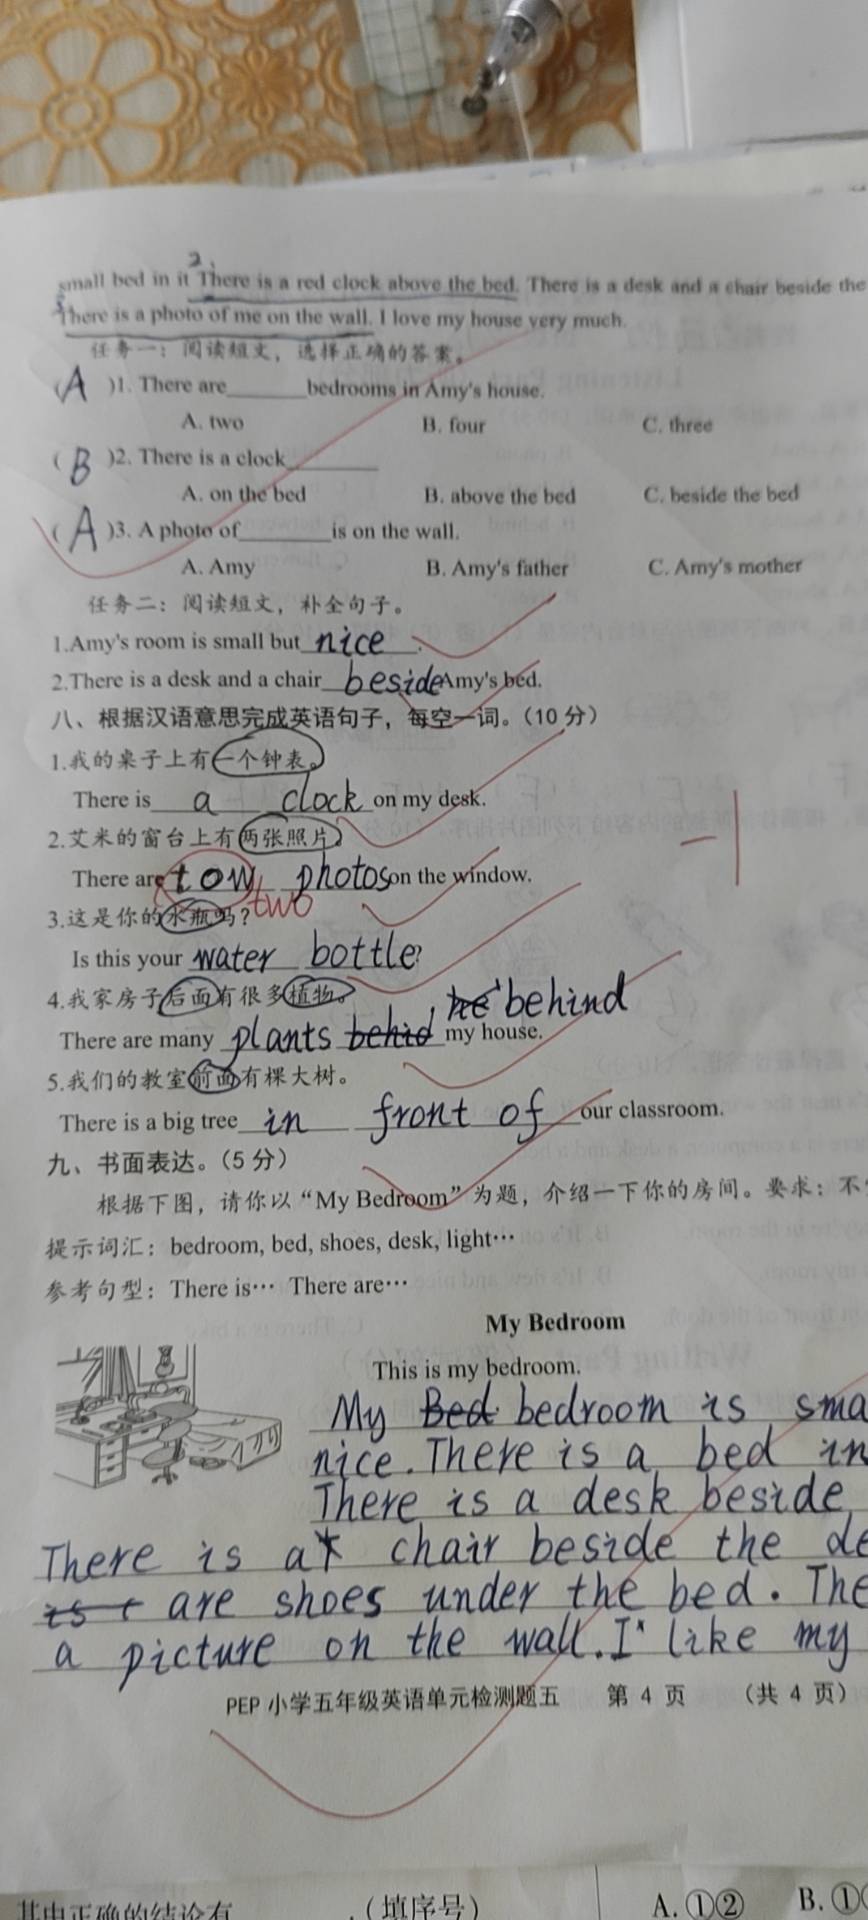 2.
small bed in it There is a red clock above the bed. There is a desk and a chair beside the
There is a photo of me on the wall. I love my house very much.
任务一：阅读短文，选择正确的答案。
(A)1. There are______bedrooms in Amy's house.
A. two B. four C. three
(B)2. There is a clock______
A. on the bed B. above the bed C. beside the bed
(A)3. A photo of______is on the wall.
A. Amy B. Amy's father C. Amy's mother
任务二：阅读短文，补全句子。
1.Amy's room is small but nice.
2.There is a desk and a chair beside Amy's bed.
八、根据汉语意思完成英语句子，每空一词。（10 分）
1.我的桌子上有一个钟表。
There is a clock on my desk.
2.艾米的窗台上有两张照片。
There are tow photos on the window.
two
-1
3.这是你的水瓶吗？
Is this your water bottle?
4.我家房子后面有很多植物。
behind
There are many plants behid my house.
5.我们的教室前面有棵大树。
There is a big tree in front of our classroom.
九、书面表达。（5 分）
根据下图，请你以“My Bedroom”为题，介绍一下你的房间。要求：不
提示词汇：bedroom, bed, shoes, desk, light…
参考句型：There is… There are…
My Bedroom
This is my bedroom.
My Bed bedroom is sma
nice. There is a bed in
There is a desk beside
There is a chair beside the de
is t are shoes under the bed. The
a picture on the wall. I like my
PEP 小学五年级英语单元检测题五 第 4 页 （共 4 页）
其中正确的结论有 .（填序号） A. ①② B. ①